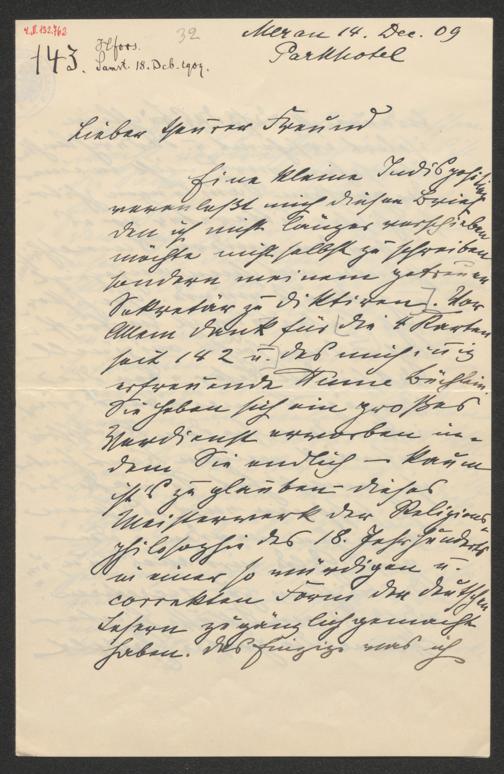 4.B.192,762
143.
Hfors.
Samst. 18. Dcb. 1909.
32
Meran 14. Dec. 09
Parkhotel
Lieber theurer Freund
Eine kleine Indisposition
veranlaßt mich diesen Brief
den ich nicht länger verschieben
möchte nicht selbst zu schreiben
sondern meinem getreuen
Sekretär zu diktiren. Vor
Allem Dank für [die 4 Karten
seit 142 u.] des mich innig
erfreuende Hume Büchlein.
Sie haben sich ein großes
Verdienst erworben in-
dem Sie endlich – kaum
ist's zu glauben – dieses
Meisterwerk der Religions-
philosophie des 18. Jahrhunderts
in einer so würdigen u.
correkten Form den deutschen
Lesern zugänglich gemacht
haben. Das Einzige was ich